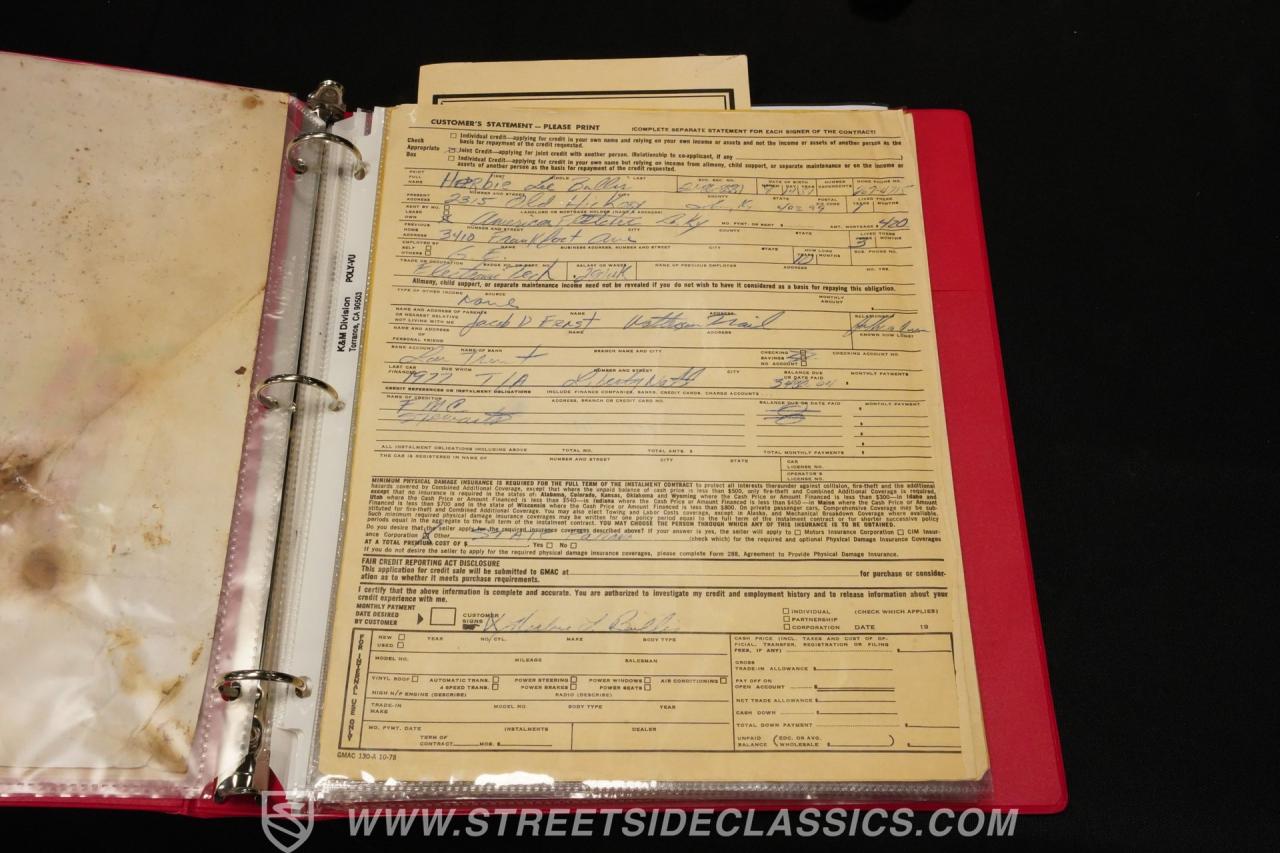 K&M Division POLY-VU
Torrance, CA 90503
CUSTOMER'S STATEMENT — PLEASE PRINT (COMPLETE SEPARATE STATEMENT FOR EACH SIGNER OF THE CONTRACT)
Check Appropriate Box
Individual credit—applying for credit in your own name and relying on your own income or assets and not the income or assets of another person as the basis for repayment of the credit requested.
Joint Credit—applying for joint credit with another person. (Relationship to co-applicant, if any
Individual Credit—applying for credit in your own name but relying on income from alimony, child support, or separate maintenance or on the income or assets of another person as the basis for repayment of the credit requested.
PRINT FULL NAME FIRST MIDDLE LAST SOC. SEC. NO. DATE OF BIRTH MONTH DAY YEAR NUMBER DEPENDENTS HOME PHONE NO.
Herbie Lee
PRESENT ADDRESS NUMBER AND STREET CITY COUNTY STATE POSTAL ZIP CODE LIVED THERE YEARS MONTHS
2315 Old Hickory
RENT BY MO. LEASE OWN LANDLORD OR MORTGAGE HOLDER (NAME & ADDRESS) MO. PYMT. OR RENT $ AMT. MORTGAGE $
American 420
PREVIOUS HOME ADDRESS NUMBER AND STREET CITY COUNTY STATE LIVED THERE YEARS MONTHS
3410 Frankfort Ave 3
EMPLOYED BY SELF OTHERS NAME BUSINESS ADDRESS, NUMBER AND STREET CITY STATE HOW LONG YEARS MONTHS BUS. PHONE NO.
G. E. 10
TRADE OR OCCUPATION BADGE NO. OR DEPT. SALARY OR WAGES NAME OF PREVIOUS EMPLOYER ADDRESS NO. YRS.
Tech
Alimony, child support, or separate maintenance income need not be revealed if you do not wish to have it considered as a basis for repaying this obligation.
TYPE OF OTHER INCOME SOURCE MONTHLY AMOUNT $
None
NAME AND ADDRESS OF PARENTS OR NEAREST RELATIVE NOT LIVING WITH ME NAME ADDRESS RELATIONSHIP
Jacob D Trail
NAME AND ADDRESS OF PERSONAL FRIEND NAME ADDRESS KNOWN HOW LONG?
BANK ACCOUNT NAME OF BANK BRANCH NAME AND CITY CHECKING SAVINGS NO ACCOUNT CHECKING ACCOUNT NO.
Lou Trust
LAST CAR FINANCED DUE WHOM NUMBER AND STREET CITY BALANCE DUE OR DATE PAID MONTHLY PAYMENTS $
1977 T/A Liberty Natl
CREDIT REFERENCES OR INSTALMENT OBLIGATIONS INCLUDE FINANCE COMPANIES, BANKS, CREDIT CARDS, CHARGE ACCOUNTS
NAME OF CREDITOR ADDRESS, BRANCH OR CREDIT CARD NO. BALANCE DUE OR DATE PAID MONTHLY PAYMENT
ALL INSTALMENT OBLIGATIONS INCLUDING ABOVE TOTAL NO. TOTAL AMTS. $ TOTAL MONTHLY PAYMENTS $
THE CAR IS REGISTERED IN NAME OF NUMBER AND STREET CITY STATE CAR LICENSE NO.
OPERATOR'S LICENSE NO.
MINIMUM PHYSICAL DAMAGE INSURANCE IS REQUIRED FOR THE FULL TERM OF THE INSTALMENT CONTRACT to protect all interests thereunder against collision, fire-theft and the additional
hazards covered by Combined Additional Coverage, except that where the unpaid balance of cash price is less than $500, only fire-theft and Combined Additional Coverage is required,
except that no insurance is required in the states of: Alabama, Colorado, Kansas, Oklahoma and Wyoming where the Cash Price or Amount Financed is less than $300—in Idaho and
Utah where the Cash Price or Amount Financed is less than $540—in Indiana where the Cash Price or Amount Financed is less than $450—in Maine where the Cash Price or Amount
Financed is less than $700 and in the state of Wisconsin where the Cash Price or Amount Financed is less than $800. On private passenger cars, Comprehensive Coverage may be sub-
stituted for fire-theft and Combined Additional Coverage. You may also elect Towing and Labor Costs coverage, except in Alaska, and Mechanical Breakdown Coverage where available.
Such minimum required physical damage insurance coverages may be written for one policy period equal to the full term of the instalment contract or for shorter successive policy
periods equal in the aggregate to the full term of the instalment contract. YOU MAY CHOOSE THE PERSON THROUGH WHICH ANY OF THIS INSURANCE IS TO BE OBTAINED.
Do you desire that the seller apply for the required insurance coverages described above? If your answer is yes, the seller will apply to Motors Insurance Corporation CIM Insur-
ance Corporation Other (check which) for the required and optional Physical Damage Insurance Coverages
AT A TOTAL PREMIUM COST OF $ Yes No
If you do not desire the seller to apply for the required physical damage insurance coverages, please complete Form 288, Agreement to Provide Physical Damage Insurance.
FAIR CREDIT REPORTING ACT DISCLOSURE
This application for credit sale will be submitted to GMAC at for purchase or consider-
ation as to whether it meets purchase requirements.
I certify that the above information is complete and accurate. You are authorized to investigate my credit and employment history and to release information about your
credit experience with me.
MONTHLY PAYMENT DATE DESIRED BY CUSTOMER CUSTOMER SIGNS INDIVIDUAL PARTNERSHIP CORPORATION (CHECK WHICH APPLIES) DATE 19
FOR INTERNAL USE ONLY
NEW USED YEAR NO. CYL. MAKE BODY TYPE
MODEL NO. MILEAGE SALESMAN
VINYL ROOF AUTOMATIC TRANS. POWER STEERING POWER WINDOWS AIR CONDITIONING
4 SPEED TRANS. POWER BRAKES POWER SEATS
HIGH H/P ENGINE (DESCRIBE) RADIO (DESCRIBE)
TRADE-IN MAKE MODEL NO. BODY TYPE YEAR
MO. PYMT. DATE INSTALMENTS DEALER
TERM OF CONTRACT MOS. $
CASH PRICE (INCL. TAXES AND COST OF OF-
FICIAL, TRANSFER, REGISTRATION OR FILING
FEES, IF ANY) $
GROSS TRADE-IN ALLOWANCE $
PAY OFF ON OPEN ACCOUNT $
NET TRADE ALLOWANCE $
CASH DOWN $
TOTAL DOWN PAYMENT $
UNPAID BALANCE (EDC. OR AVG. WHOLESALE $ ) $
GMAC 130-A 10-78
WWW.STREETSIDECLASSICS.COM